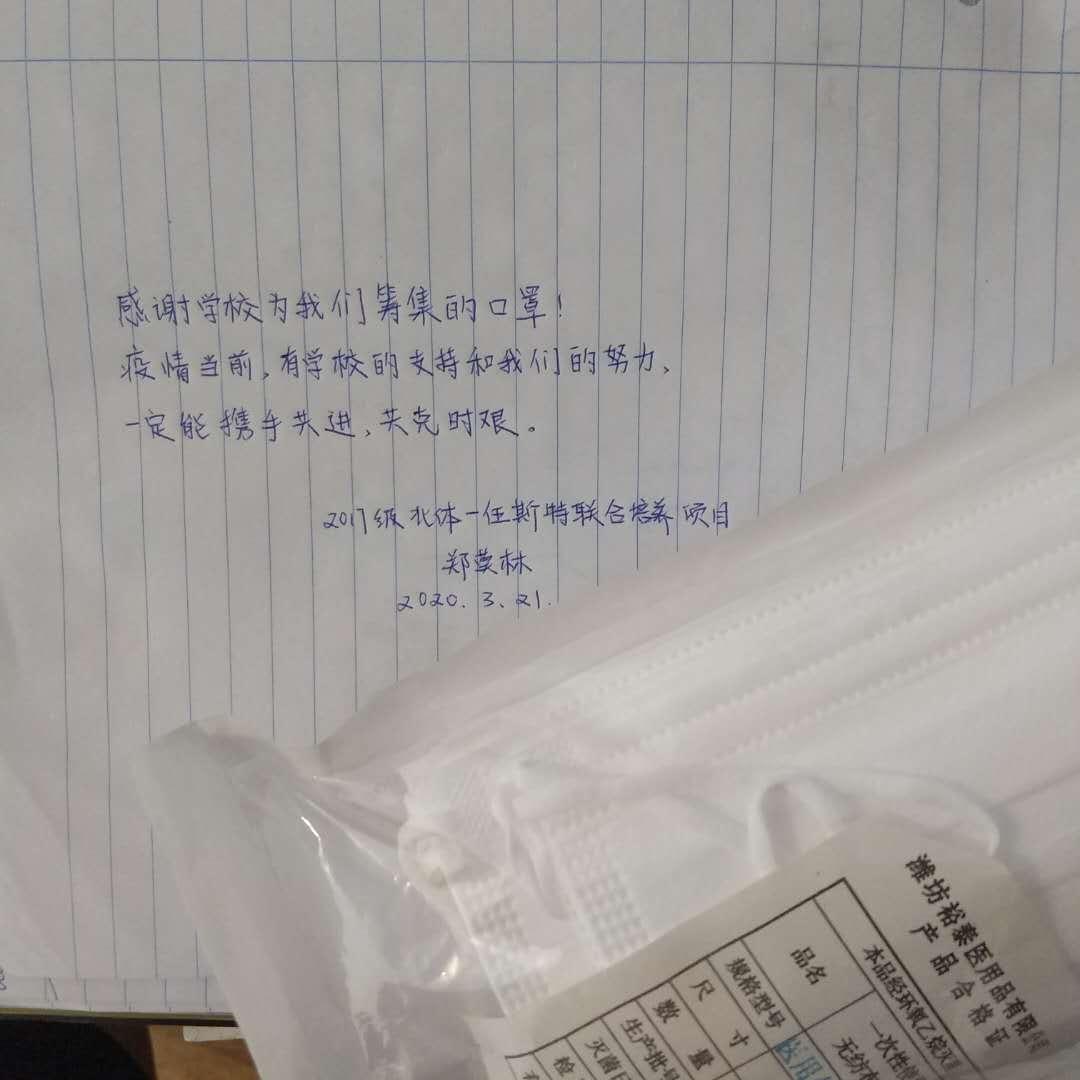 感谢学校为我们筹集的口罩！
疫情当前，有学校的支持和我们的努力，
一定能携手共进，共克时艰。
2017级北体一伍斯特联合培养项目
郑英林
2020.3.21.
潍坊裕泰医用品有限公司
产品合格证
本品经环氧乙烷灭
品名
一次性使
无纺布
规格型号
医用
尺寸
数量
生产批号
灭菌日
检